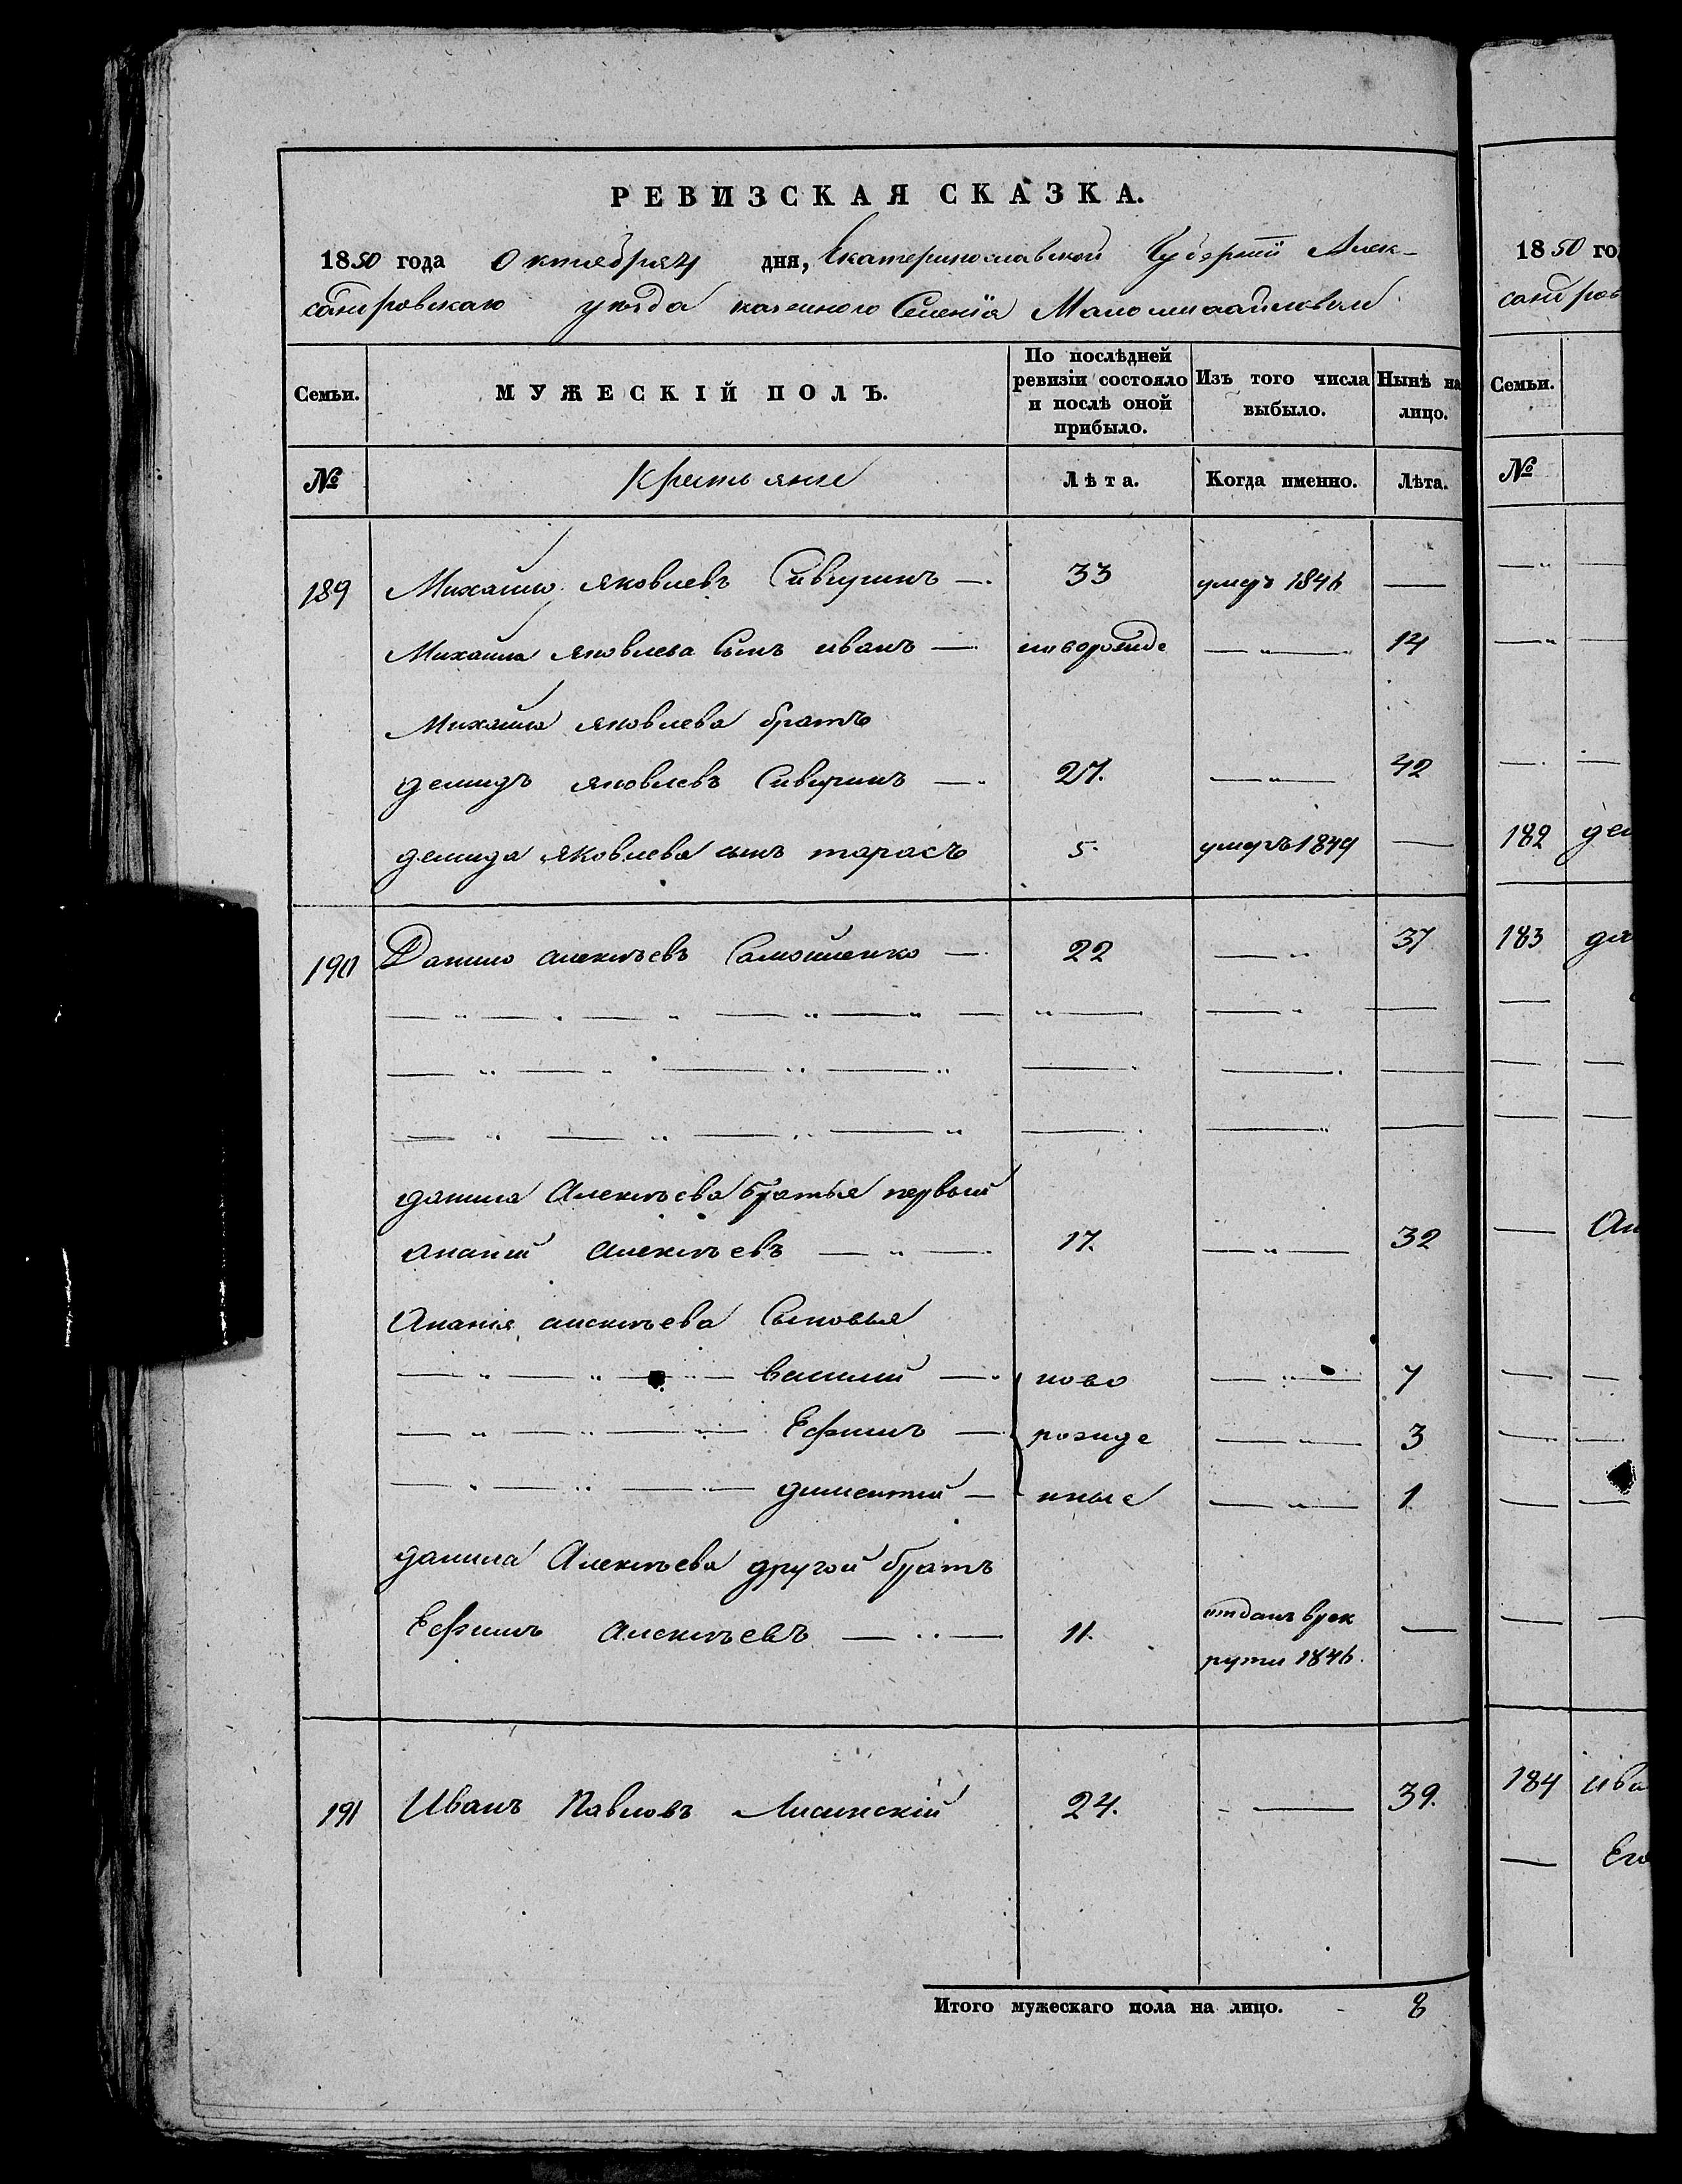 РЕВИЗСКАЯ СКАЗКА.
1850 года Октября 4 дня, Екатеринославской Губернiи Алек-
сандровскаго уѣзда казенного Селенiя Маломихайловки
Семьи. МУЖЕСКIЙ ПОЛЪ. По послѣдней ревизiи состояло и послѣ оной прибыло. Изъ того числа выбыло. Нынѣ на лицо.
№ Крестьяне Лѣта. Когда именно. Лѣта.
189 Михайло Яковлевъ 33 умеръ 1846 —
Михаила Яковлева Сынъ иванъ — новорожде — 14
Михайла Яковлева братъ
демидъ Яковлевъ — 27. — 42
демида Яковлева сынъ тарасъ 5. умеръ 1844 —
190 Данило алексѣевъ Самойленко — 22 — 37
данила Алексѣева братья первый
ананiй алексѣевъ — 17. — 32
Ананiя алексѣева Сыновья
василий — ново — 7
Ефимъ — рожде — 3
диментий — нные — 1
данила Алексѣева другой братъ
Ефимъ алексѣевъ — 11. отданъ врек —
руты 1846.
191 Иванъ Павловъ Лисинскiй 24. — 39.
Итого мужескаго пола на лицо. - 8
1850 го
санд ров
Семьи.
№
182 дем
183 да
Ан
184 ива
Его